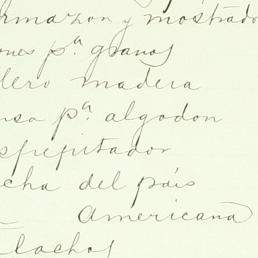 rmazon y mostrado
ones pª granos
lero madera
nsa pª algodon
spepitador
cha del país
Americana
lachos